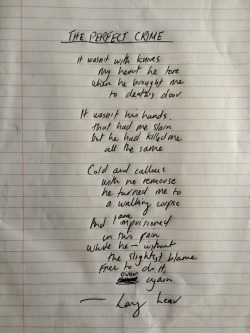 THE PERFECT CRIME
It wasn't with knives
my heart he tore
when he brought me
to death's door
It wasn't his hands
that had me slain
but he had killed me
all the same
Cold and callous
with no remorse
he turned me to
a walking corpse
And I am imprisoned
in this pain
While he - without
the slightest blame
Free to do it,
over again
— Lang Leav